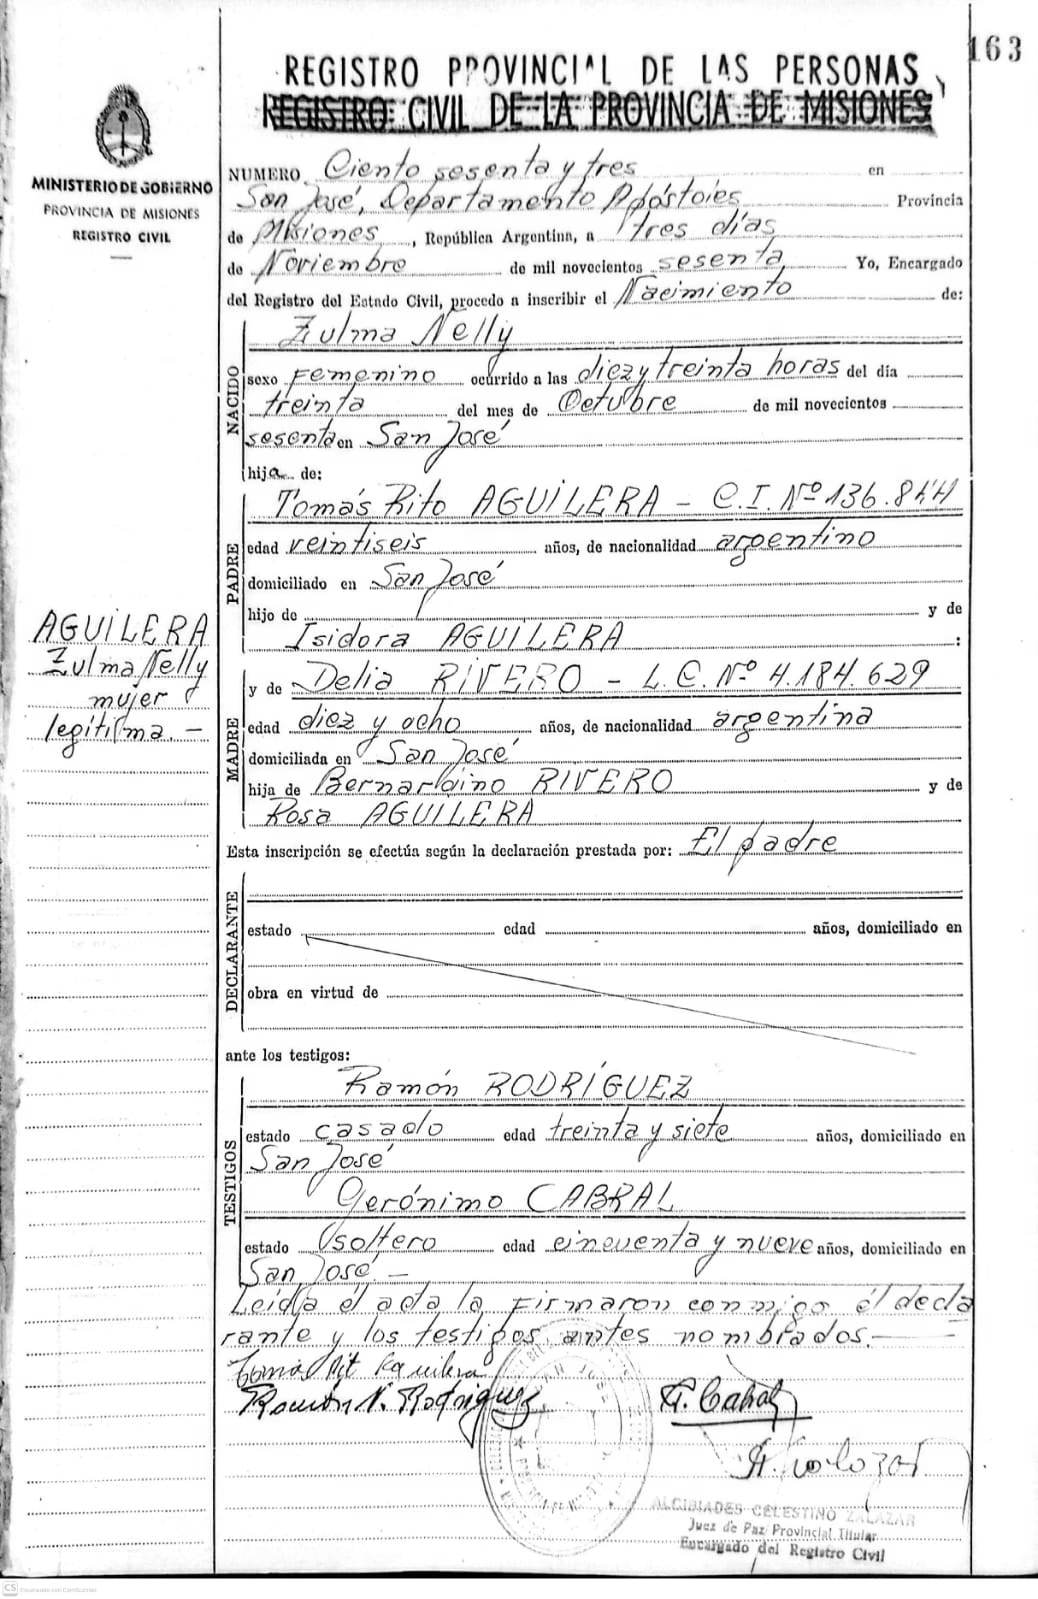 163
REGISTRO PROVINCIAL DE LAS PERSONAS
REGISTRO CIVIL DE LA PROVINCIA DE MISIONES
MINISTERIO DE GOBIERNO
PROVINCIA DE MISIONES
REGISTRO CIVIL
NUMERO Ciento sesenta y tres en
San José, Departamento Apóstoles Provincia
de Misiones, República Argentina, a tres días
de Noviembre de mil novecientos sesenta, Yo, Encargado
del Registro del Estado Civil, procedo a inscribir el Nacimiento de:
NACIDO
Zulma Nelly
sexo Femenino ocurrido a las diez y treinta horas del día
treinta del mes de Octubre de mil novecientos
sesenta en San José
hija de:
PADRE
Tomás Rito AGUILERA - C.I. Nº 136.844
edad veintiseis años, de nacionalidad argentino
domiciliado en San José
hijo de y de
Isidora AGUILERA :
AGUILERA
Zulma Nelly
mujer
legítima. -
MADRE
y de Delia RIVERO - L.C. Nº 4.184.629
edad diez y ocho años, de nacionalidad argentina
domiciliada en San José
hija de Bernardino RIVERO y de
Rosa AGUILERA
Esta inscripción se efectúa según la declaración prestada por: El padre
DECLARANTE
estado edad años, domiciliado en
obra en virtud de
ante los testigos:
TESTIGOS
Ramón RODRÍGUEZ
estado casado edad treinta y siete años, domiciliado en
San José
Gerónimo CABRAL
estado soltero edad cincuenta y nueve años, domiciliado en
San José -
Leída el acta la firmaron conmigo el decla
rante y los testigos antes nombrados.-
Ramón V. Rodriguez
G. Cabral
ALCIBIADES CELESTINO ZALAZAR
Juez de Paz Provincial Titular
Encargado del Registro Civil
CS Escaneado con CamScanner